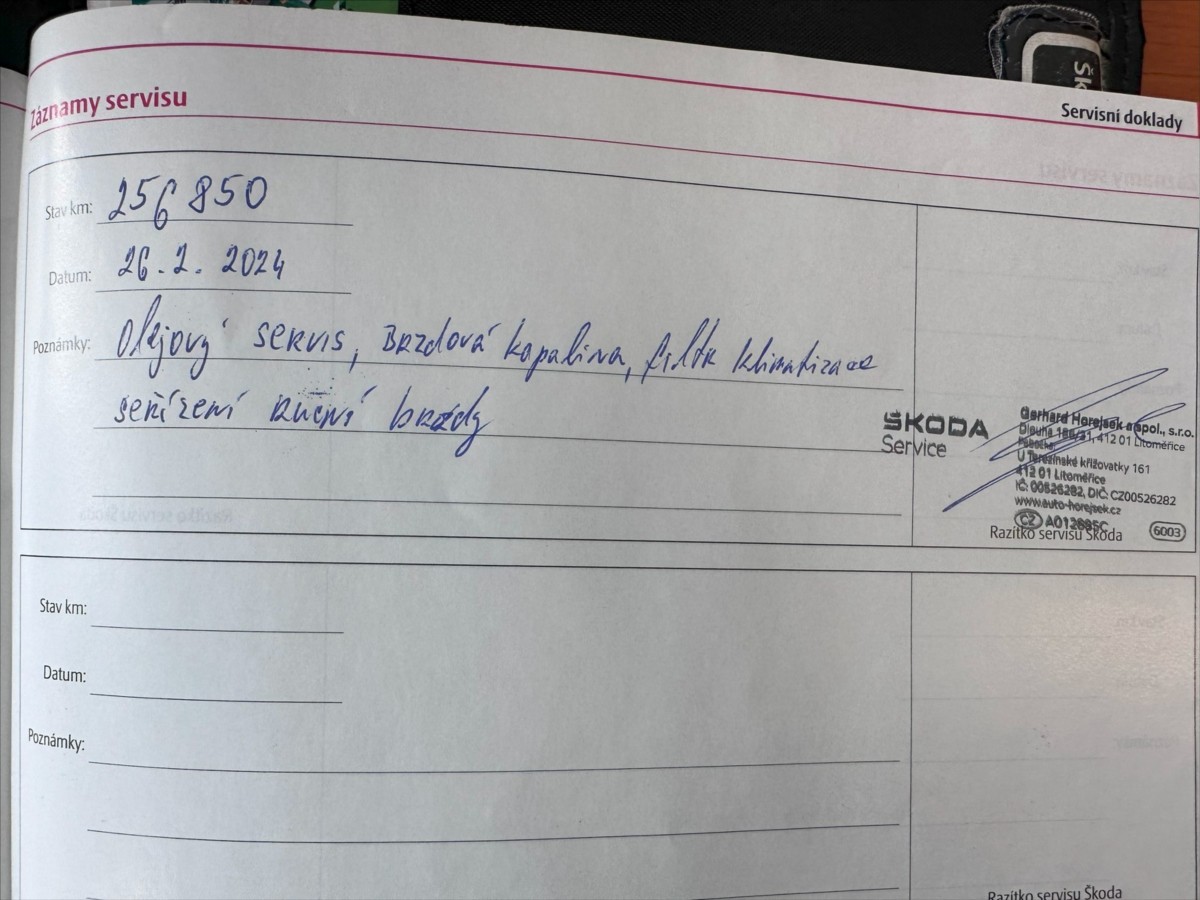 Záznamy servisu
Servisní doklady
Stav km: 256 850
Datum: 26. 2. 2024
Poznámky: Olejový servis, Brzdová kapalina, filtr klimatizace
seřízení ruční brzdy
ŠKODA
Service
Gerhard Horejsek a spol., s.r.o.
Dlouhá 188/31, 412 01 Litoměřice
Pobočka:
U Terezínské křižovatky 161
412 01 Litoměřice
IČ: 00526282, DIČ: CZ00526282
www.auto-horejsek.cz
CZ
Razítko servisu Škoda
6003
Stav km:
Datum:
Poznámky:
Razítko servisu Škoda